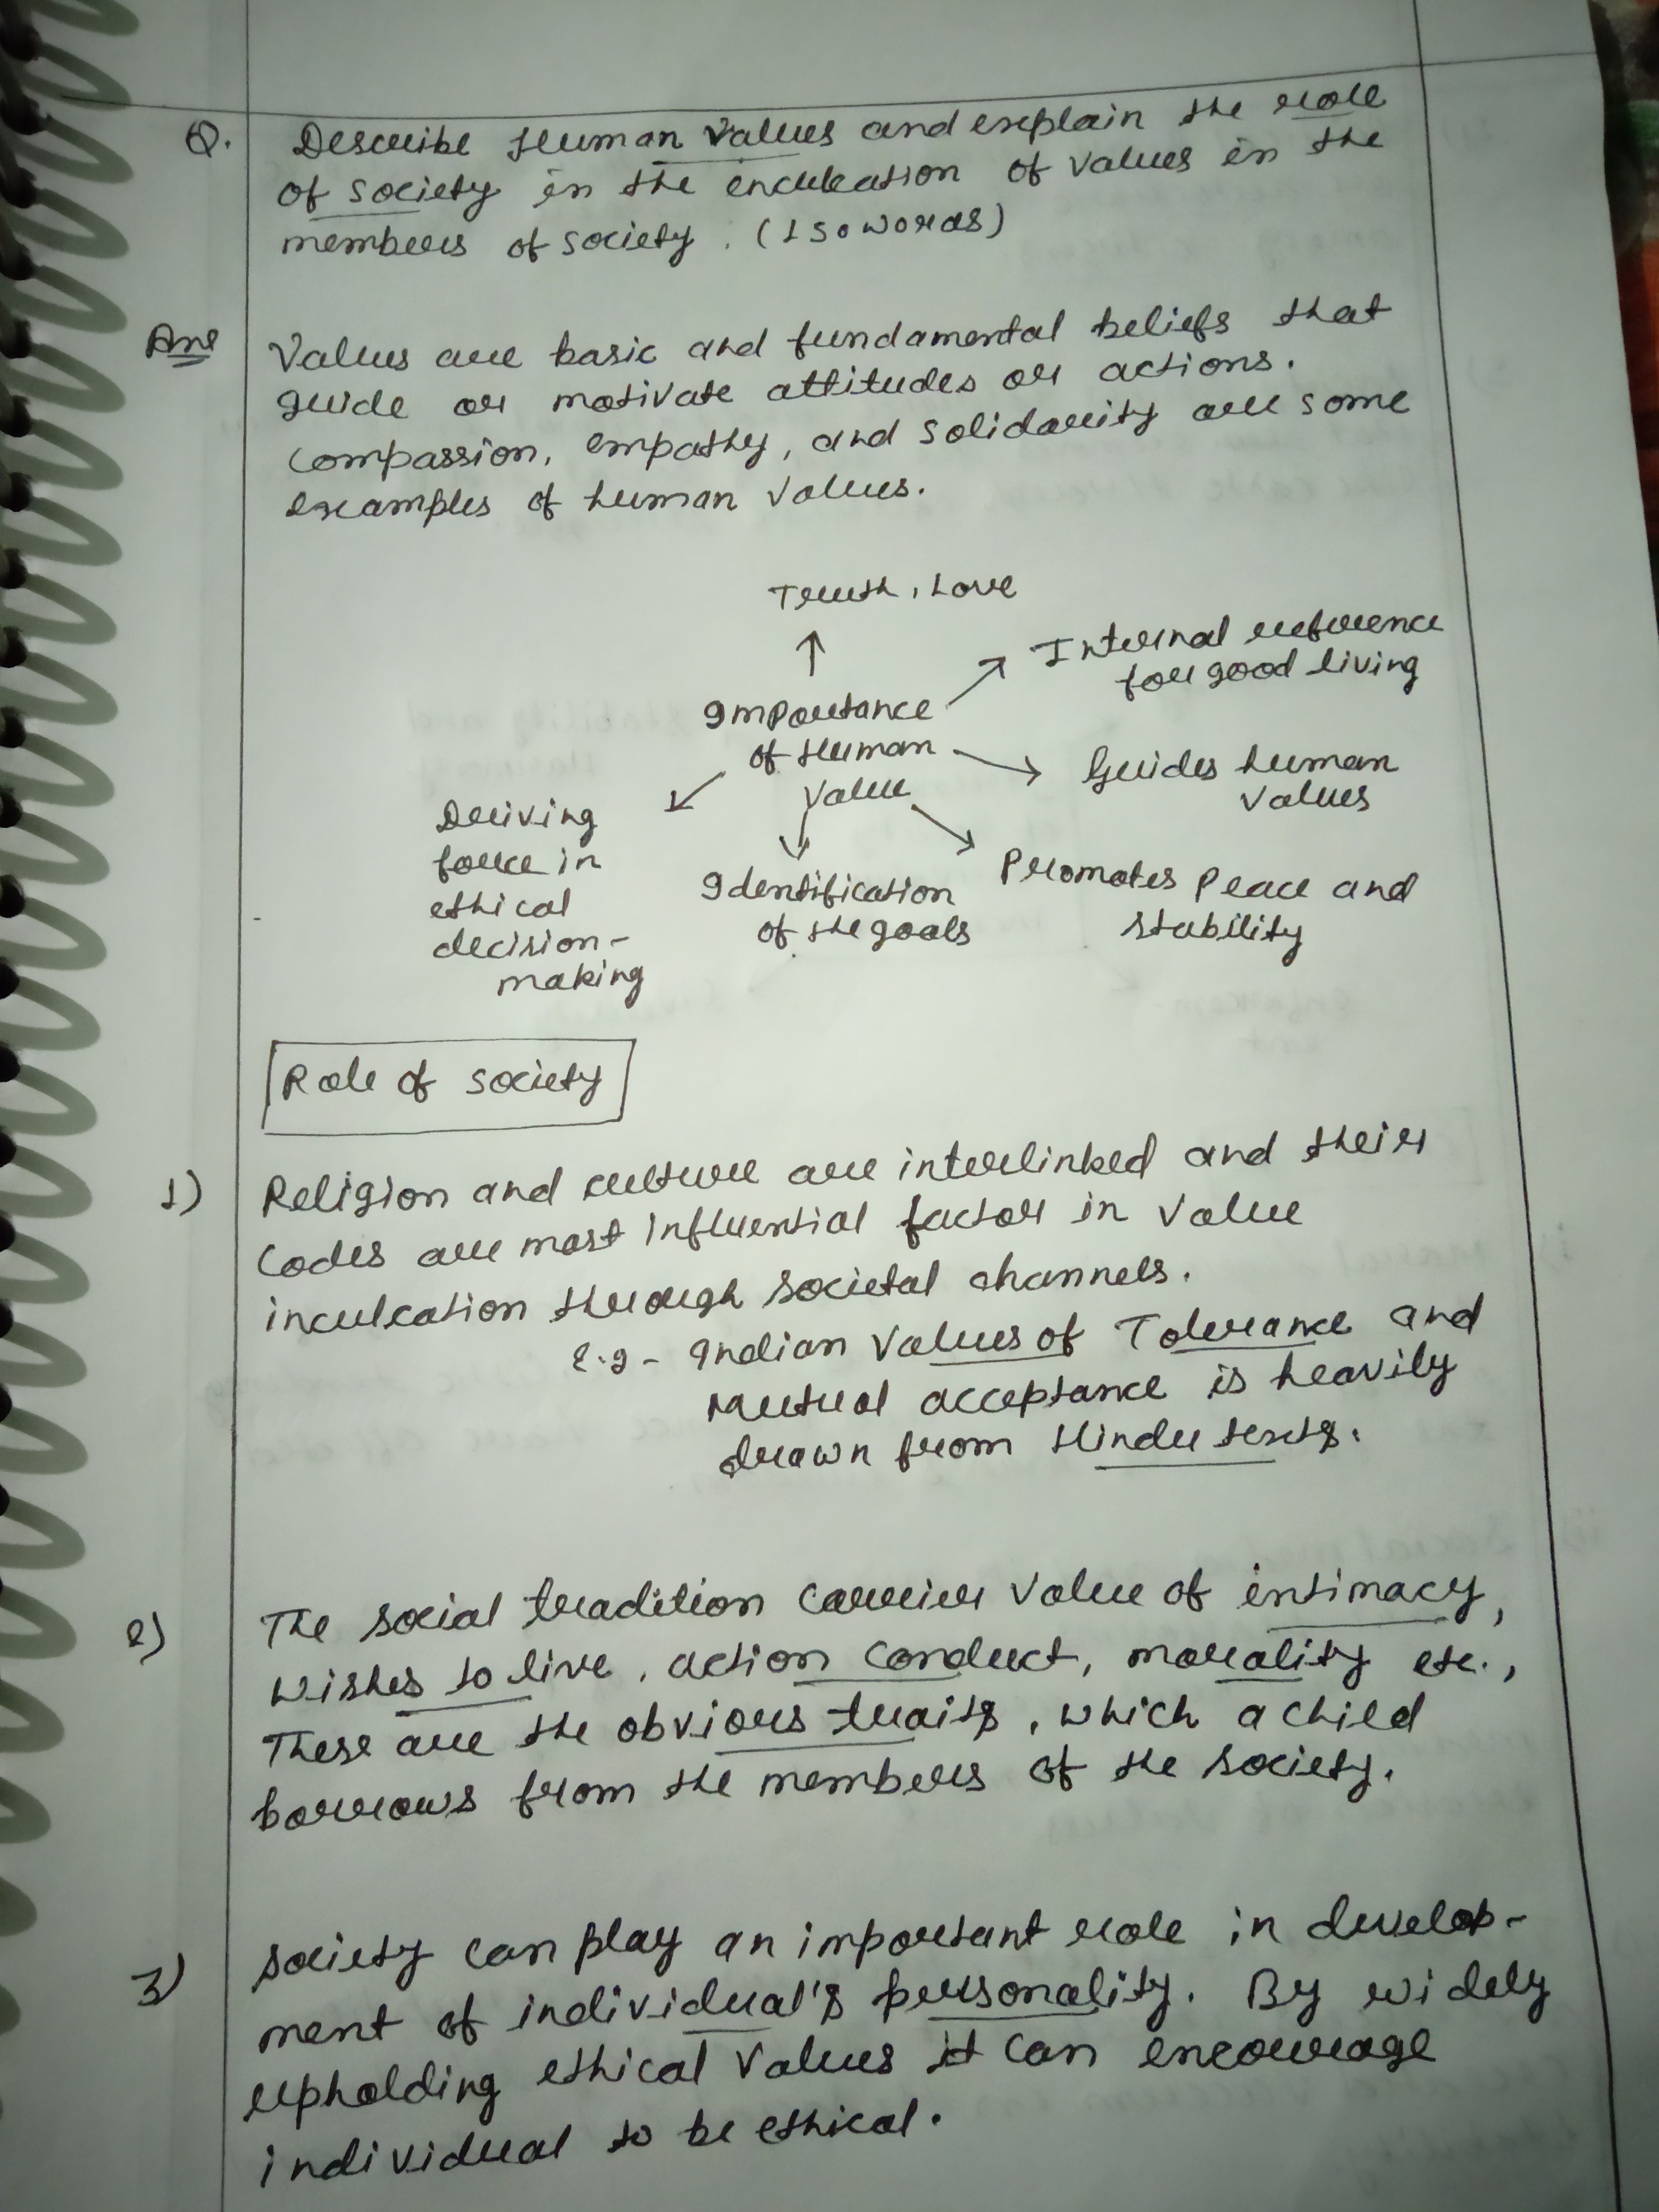 Q. Describe Human Values and explain the role
of society in the inculcation of values in the
members of society. (150 words)
Ans Values are basic and fundamental beliefs that
guide or motivate attitudes or actions.
Compassion, empathy, and solidarity are some
examples of human values.
Truth, Love
Internal reference
for good living
Importance
of Human
Value
Guides human
values
Deriving
force in
ethical
decision-
making
Identification
of the goals
Promotes Peace and
stability
Role of society
1) Religion and culture are interlinked and their
codes are most influential factor in value
inculcation through societal channels.
E.g - Indian values of Tolerance and
Mutual acceptance is heavily
drawn from Hindu texts.
2) The social tradition carrier value of intimacy,
wishes to live, action conduct, morality etc.,
These are the obvious traits, which a child
borrows from the members of the society.
3) society can play an important role in develop-
ment of individual's personality. By widely
upholding ethical values it can encourage
individual to be ethical.